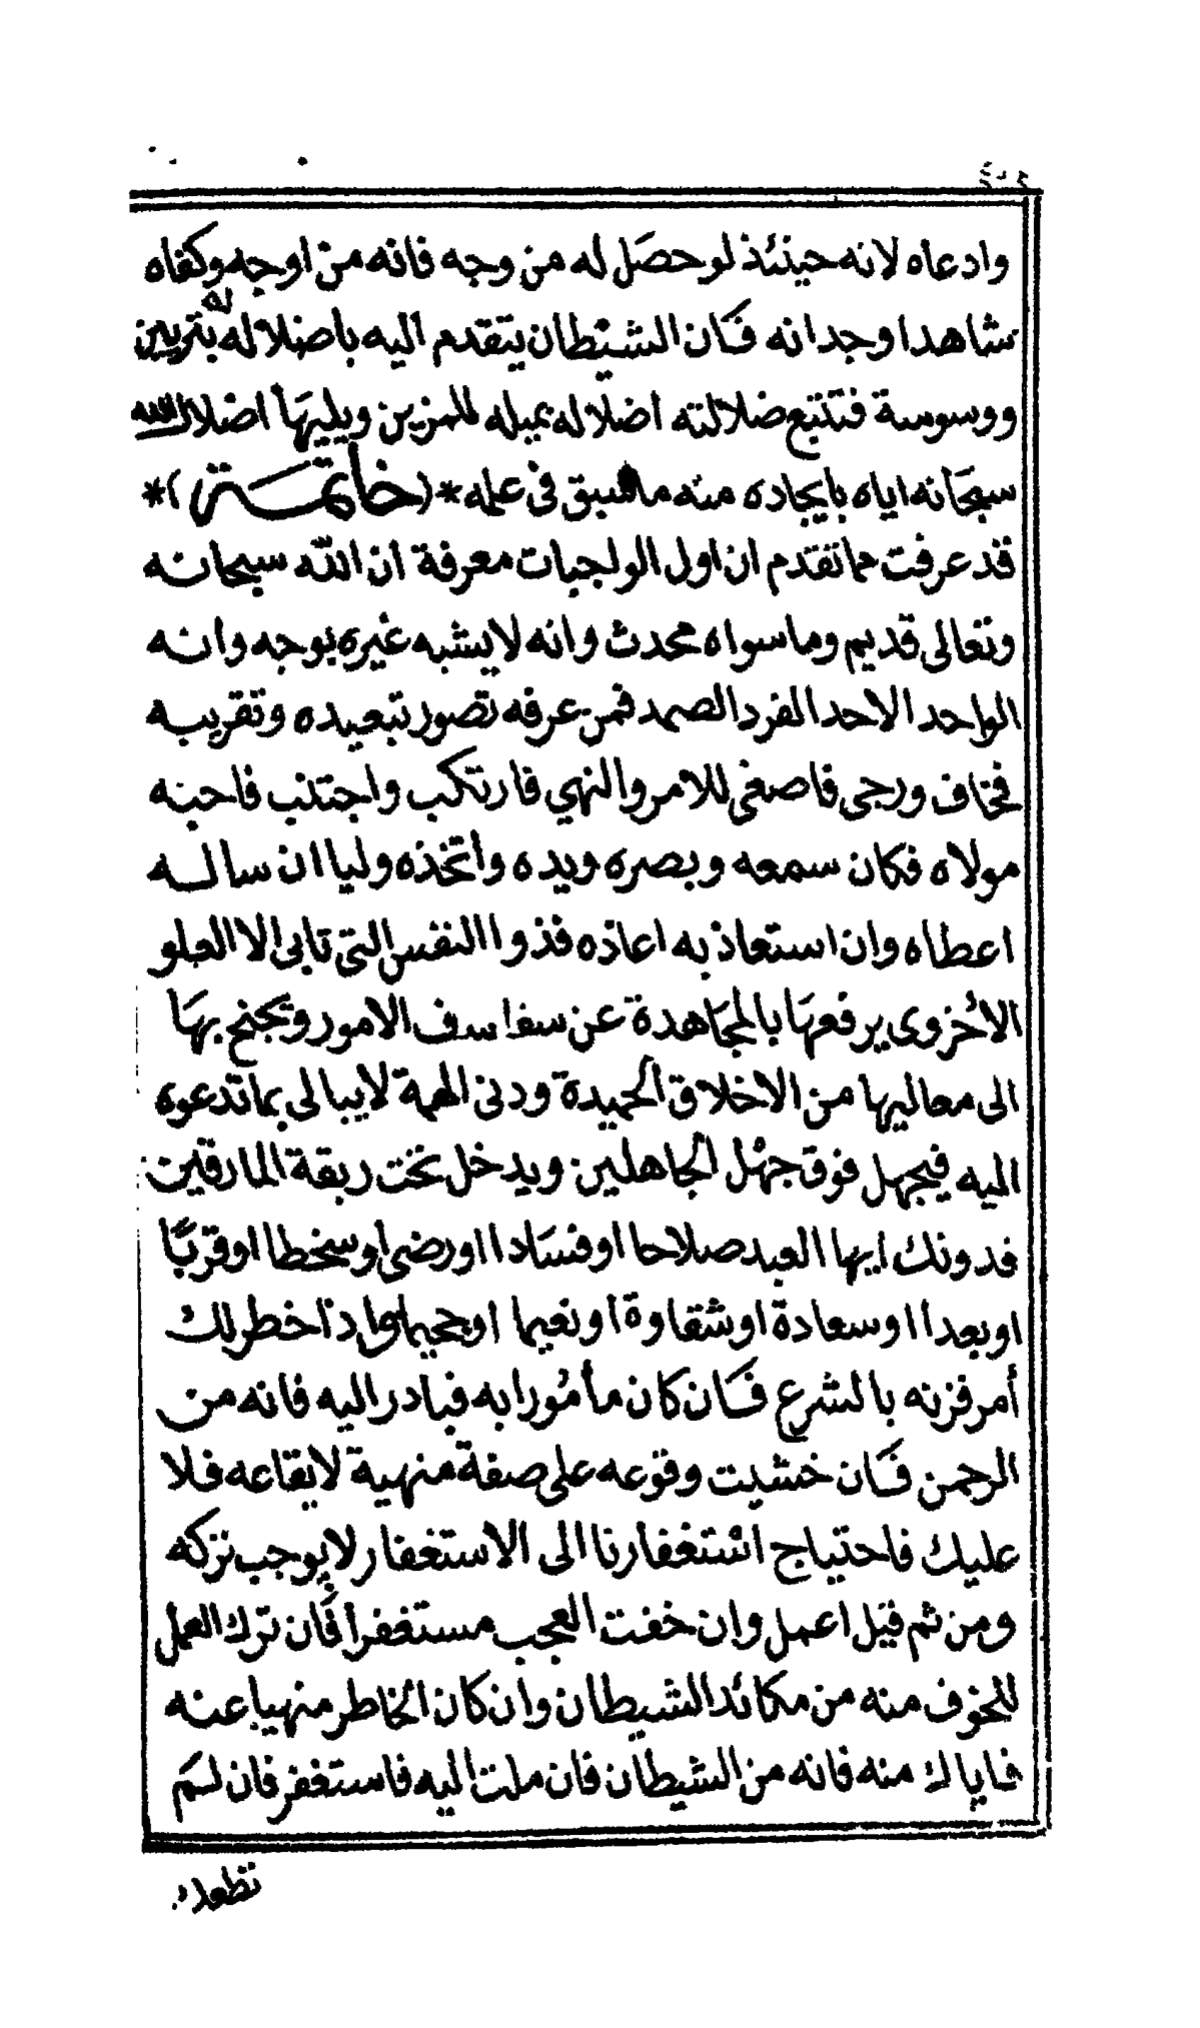 وادعاه لانه حينئذ لو حصل له من وجه فانه من اوجه وكفاه
شاهدا وجدانه فكان الشيطان يتقدم اليه باضلاله له بتزيين
ووسوسة فتتبع ضلالته اضلاله بميله للمزين ويليها اضلال الله
سبحانه اياه بايجاده منه ما سبق في علمه *(خاتمة)*
قد عرفت مما تقدم ان اول الواجبات معرفة ان الله سبحانه
وتعالى قديم وما سواه محدث وانه لا يشبه غيره بوجه وانه
الواحد الاحد الفرد الصمد فمن عرفه تصور تبعيده وتقريبه
فخاف ورجى فاصغى للامر والنهي فارتكب واجتنب فاحبه
مولاه فكان سمعه وبصره ويده واتخذه وليا ان ساله
اعطاه وان استعاذ به اعاذه فذوا النفس التي تابى الا العلو
الاخروى يرفعها بالمجاهدة عن سفاسف الامور ويجنح بها
الى معاليها من الاخلاق الحميدة ودنى الهمة لا يبالى بما تدعوه
اليه فيجهل فوق جهل الجاهلين ويدخل تحت ربقة المارقين
فدونك ايها العبد صلاحا او فسادا او رضى او سخطا او قربا
او بعدا او سعادة او شقاوة او نعيما او جحيما واذا خطر لك
أمر فزنه بالشرع فكان كان مأمورا به فبادر اليه فانه من
الرحمن فان خشيت وقوعه على صفة منهية لا يقاعه فلا
عليك فاحتياج استغفارنا الى الاستغفار لا يوجب تركه
ومن ثم قيل اعمل وان خفت العجب مستغفرا فان ترك العمل
للخوف منه من مكائد الشيطان وان كان الخاطر منهيا عنه
فاياك منه فانه من الشيطان فان ملت اليه فاستغفر فان لم
تطعك